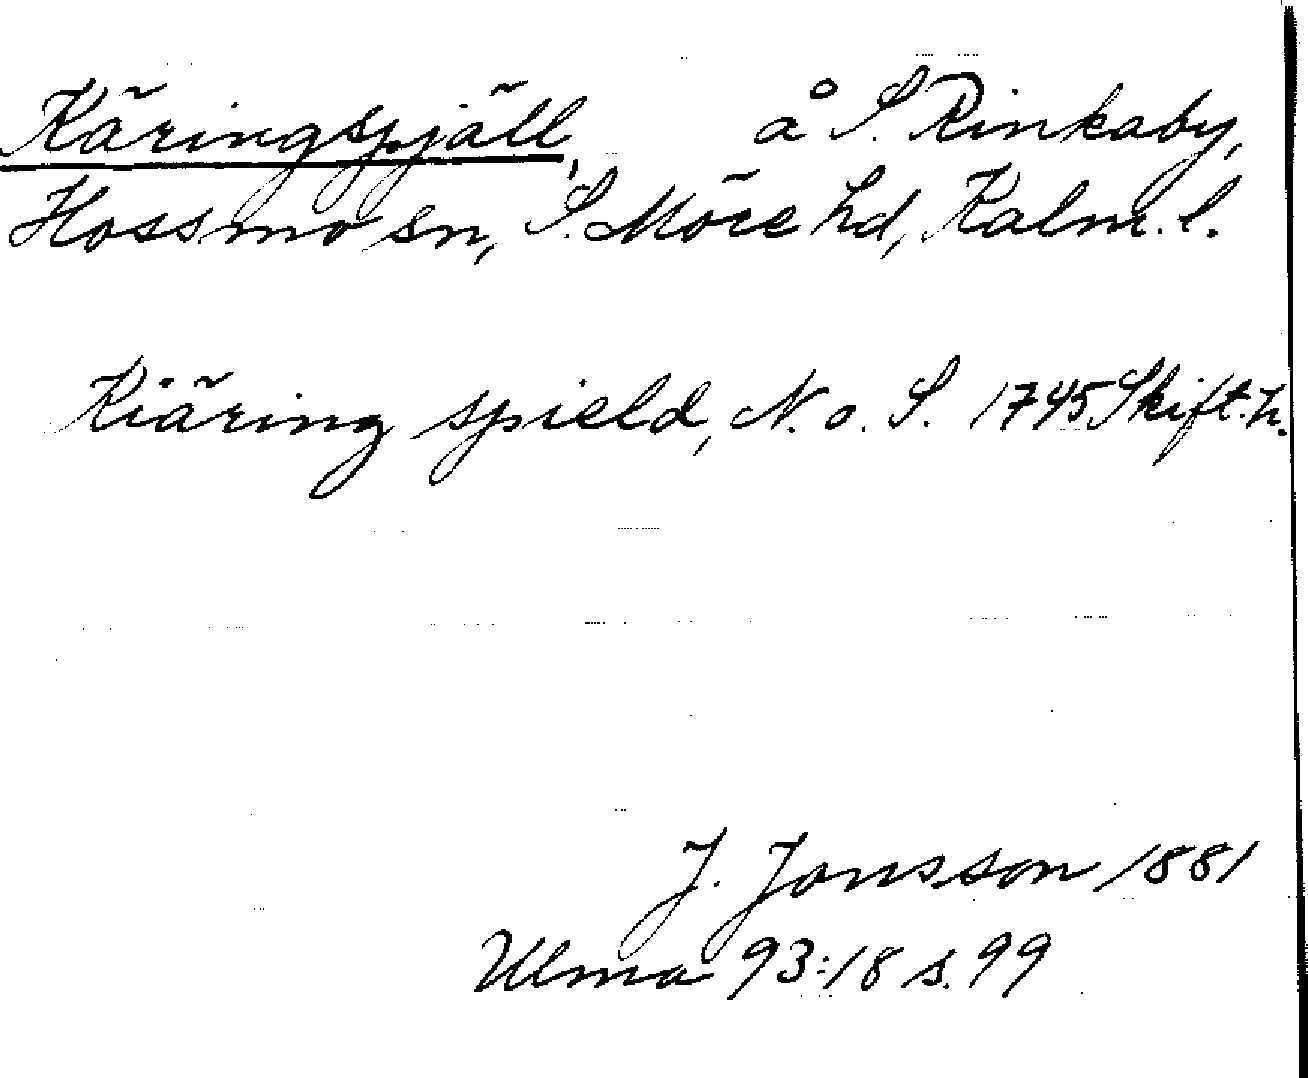 Käringspjäll, å S. Rinkaby,
Hossmo sn, S. Möre hd, Kalm. l.
Kiäring spield, N. o. S. 1745 Skift. h.
J. Jonsson 1881
Ulma 93:18 s. 99